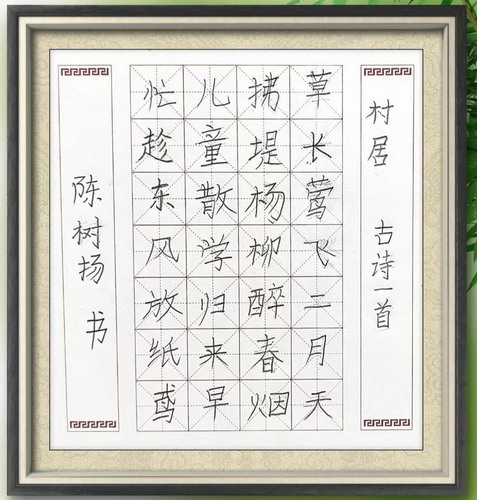 村居 古诗一首
草长莺飞二月天
拂堤杨柳醉春烟
儿童散学归来早
忙趁东风放纸鸢
陈树扬 书